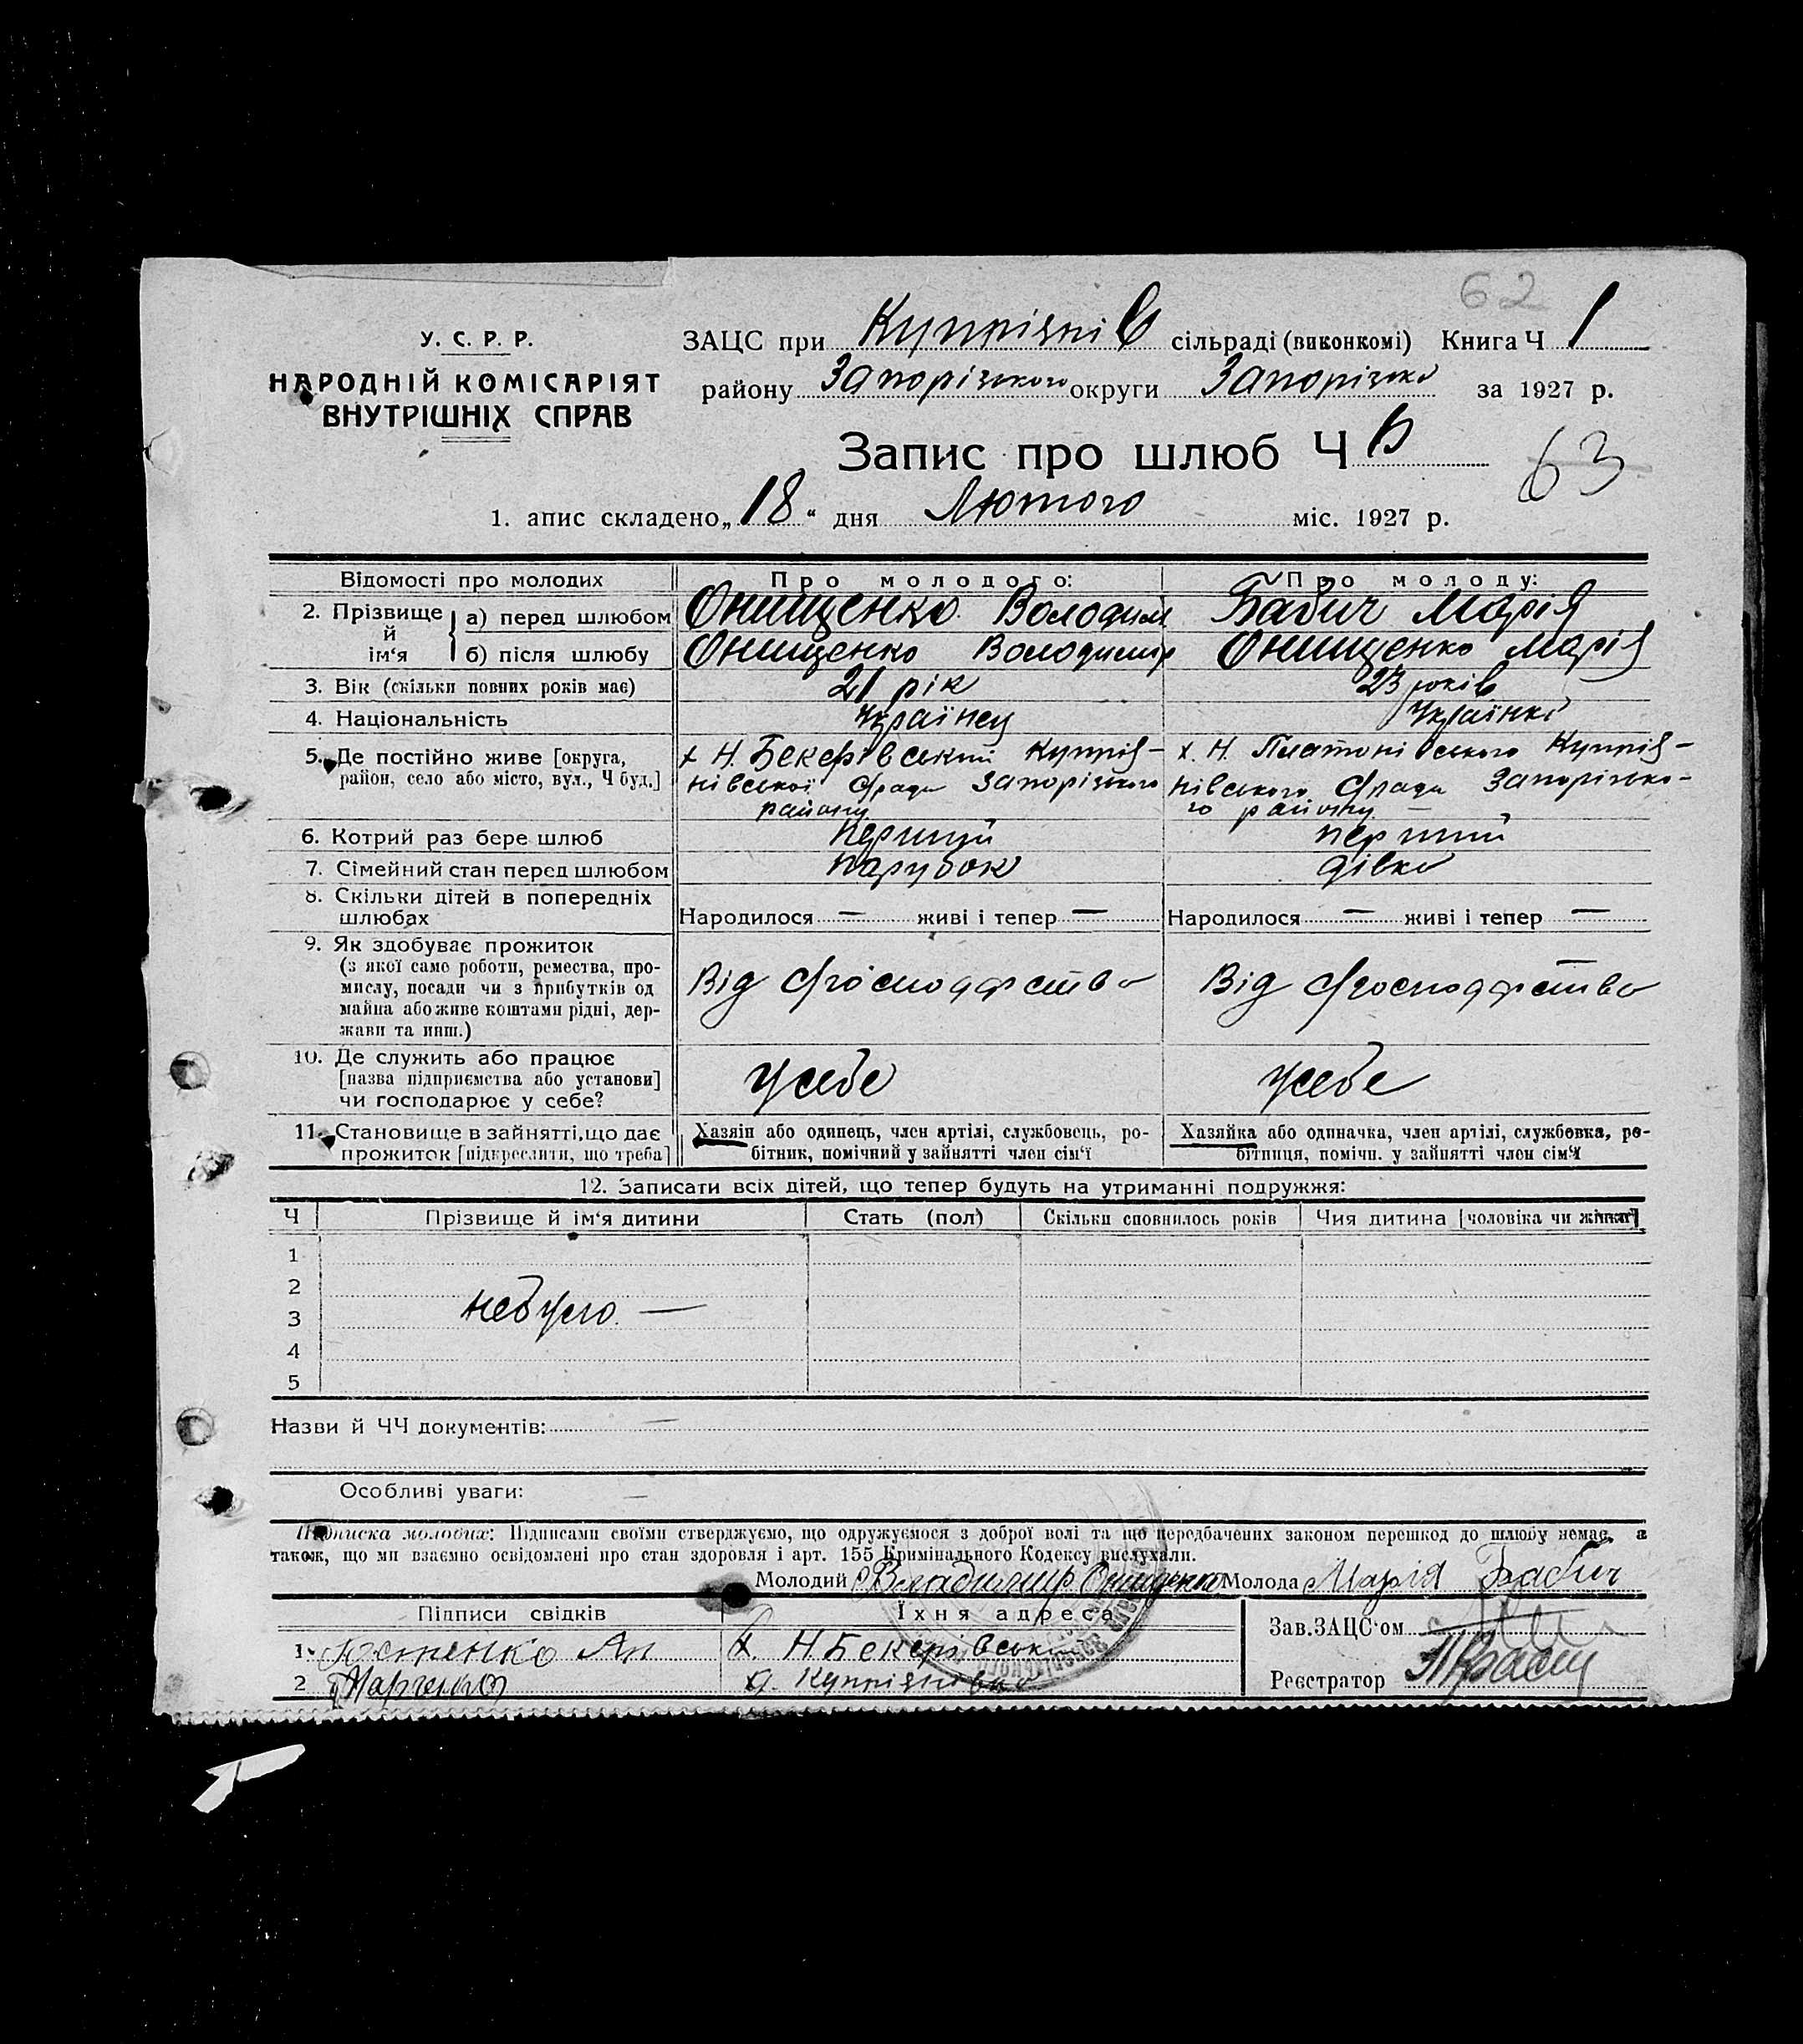 62
У. С. Р. Р.
НАРОДНІЙ КОМІСАРІЯТ
ВНУТРІШНІХ СПРАВ
ЗАЦС при Куприянів сільраді (виконкомі) Книга Ч 1
району Запорізького округи Запорізько за 1927 р.
Запис про шлюб Ч 6
63
1. апис складено „18“ дня Лютого міс. 1927 р.
Відомості про молодих Про молодого: Про молоду:
2. Прізвище й ім‘я а) перед шлюбом Онищенко Володим Бабич Марія
б) після шлюбу Онищенко Володимир Онищенко Марія
3. Вік (скільки повних років має) 21 рік 23 років
4. Національність Українец Українка
5. Де постійно живе [округа, район, село або місто, вул., Ч буд.] х Н. Бекерівський Купрія- х. Н. Платонівського Купрія-
нівської с/ради Запорізького нівського с/ради Запорізько-
району го району —
6. Котрий раз бере шлюб перший перший
7. Сімейний стан перед шлюбом парубок дівка
8. Скільки дітей в попередніх шлюбах Народилося — живі і тепер — Народилося — живі і тепер —
9. Як здобуває прожиток
(з якої саме роботи, ремества, про-
мислу, посади чи з прибутків од Від с/господарства Від с/господарства
майна або живе коштами рідні, дер-
жави та инш.)
10. Де служить або працює
[назва підприємства або установи] у себе у себе
чи господарює у себе?
11. Становище в зайнятті, що дає Хазяін або одинець, член артілі, службовець, ро- Хазяйка або одиначка, член артілі, службовка, ро-
прожиток [підкреслити, що треба] бітник, помічний у зайнятті член сім‘ї бітниця, помічн. у зайнятті член сім‘ї
12. Записати всіх дітей, що тепер будуть на утриманні подружжя:
Ч Прізвище й ім‘я дитини Стать (пол) Скільки сповнилось років Чия дитина [чоловіка чи жінки]
1
2
небуло —
3
4
5
Назви й ЧЧ документів: —
Особливі уваги: —
Підписка молодих: Підписами своїми стверджуємо, що одружуємося з доброї волі та що передбачених законом перешкод до шлюбу немає, а
також, що ми взаємно освідомлені про стан здоровля і арт. 155 Кримінального Кодексу вислухали.
Молодий Владимир Онищенко Молода Марія Бабич
Підписи свідків Їхня адреса Зав. ЗАЦС‘ом
1. х. Н Бекерівськ
2 Марченко с. Купріянівка Реєстратор